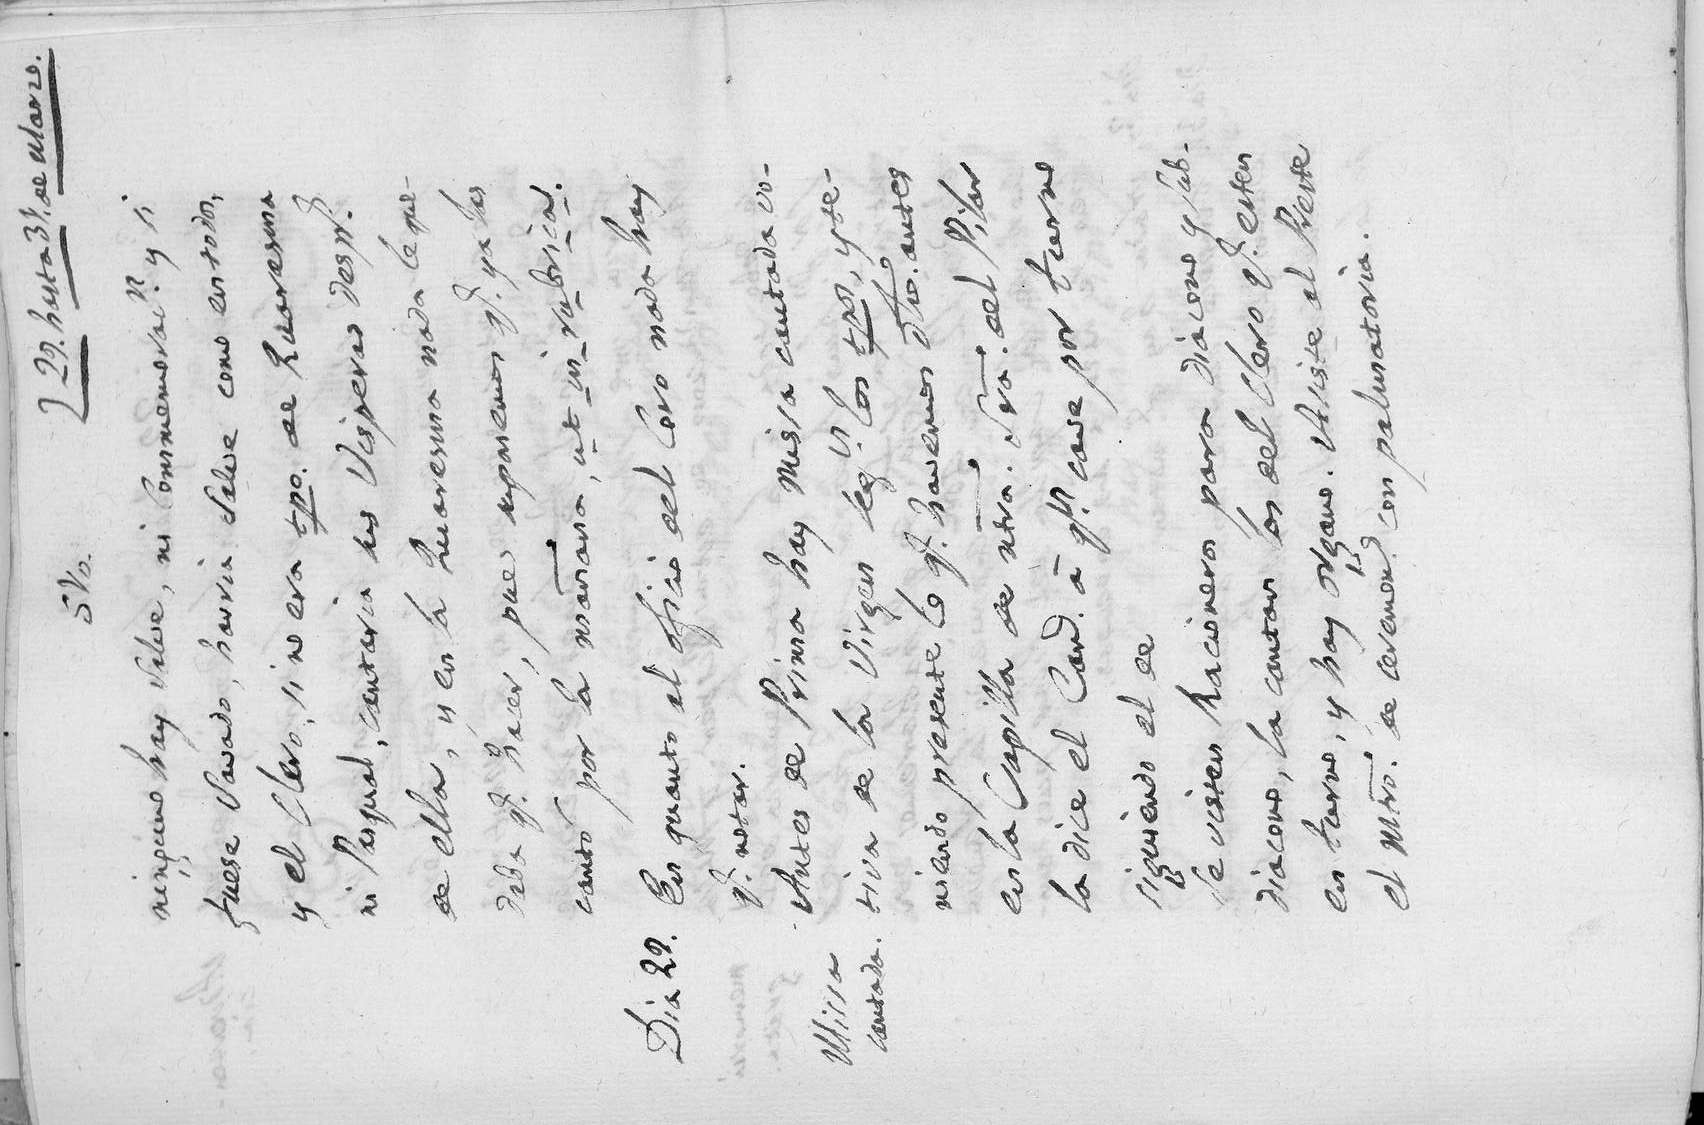 29. hasta 31. de Marzo.
ninguno hay Salve, ni Conmemorac.n y si
fuese Savado, havria Salve como en todos,
y el Clero, si no era tpo. de Quaresma
ni Pasqual, cantaria las Visperas desp.s
de ella, y en la Quaresma nada le que-
daba q.e hacer, pues suponemos q.e ya las
cantó por la mañana, ut in rubricas.
Dia 29. En quanto al oficio del Coro nada hay
q.e notar.
Missa cantada. Antes de Prima hay Missa cantada vo-
tiva de la Virgen seg.n los tpos, y te-
niendo presente lo q.e havemos dho. antes
en la Capilla de ntra. Sra. del Pilar
la dice el Card.l à q.n cave por turno
siguiendo el de
se visten Racioneros para Diacono y Sub-
diacono, la cantan los del Clero q.e esten
en turno, y hay organo. Asiste al Preste
el Mtro. de ceremon.s con palmatoria.